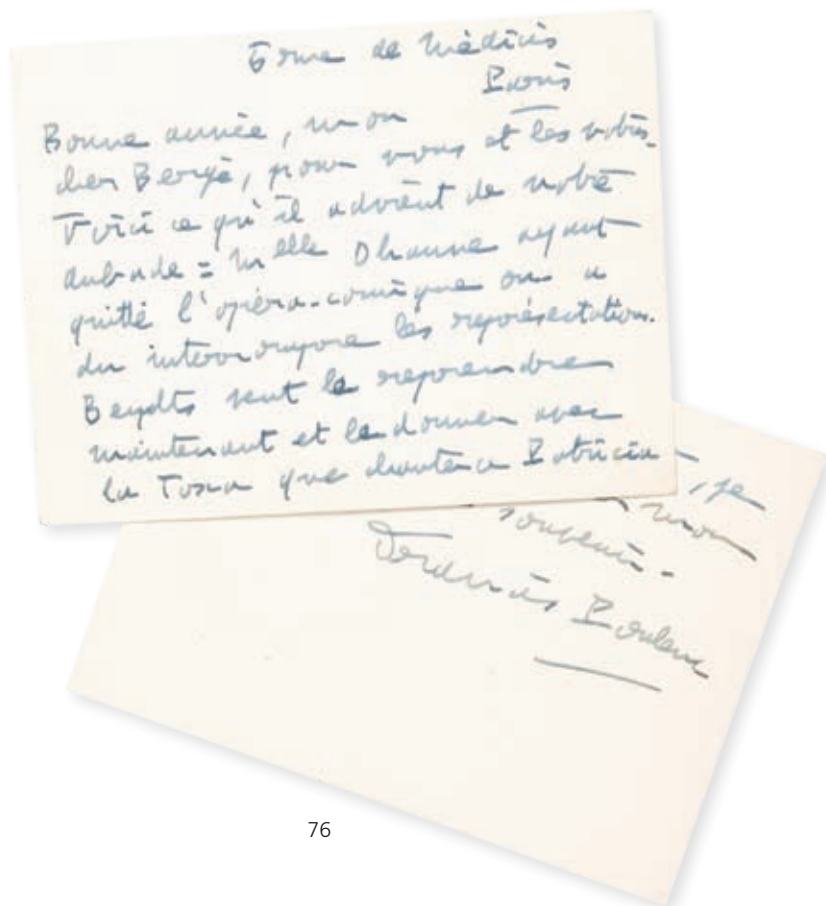 5 rue de Médicis
Paris
Bonne année, mon
cher Bergé, pour vous et les votres.
Voici ce qu'il advient de notre
aubade = Melle Dhanne ayant
quitté l'opéra-comique on a
du interrompre les représentations.
Beydts veut la reprendre
maintenant et la donner avec
la Tosca que chantera Patricia
, je
mon
souvenir.
Francis Poulenc
76